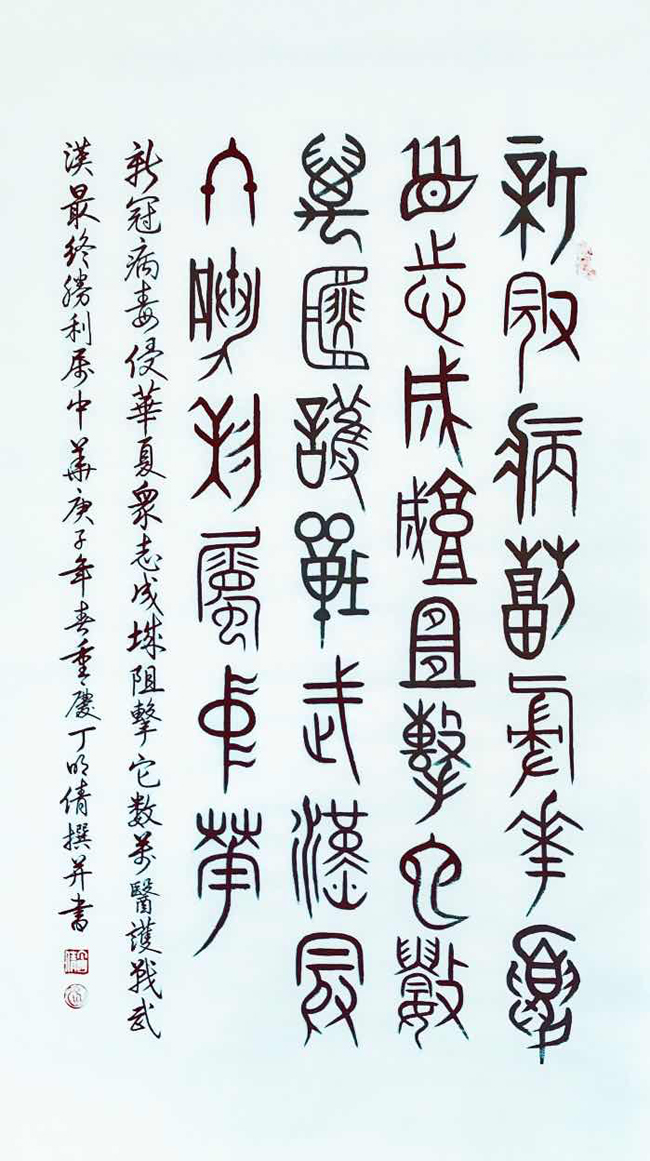 新冠病毒侵華夏
眾志成城阻擊它數
萬醫護戰武漢最
終勝利屬中華
新冠病毒侵華夏衆志成城阻擊它数萬醫護戰武
漢最終勝利屬中華庚子年春重慶丁明倩撰并書